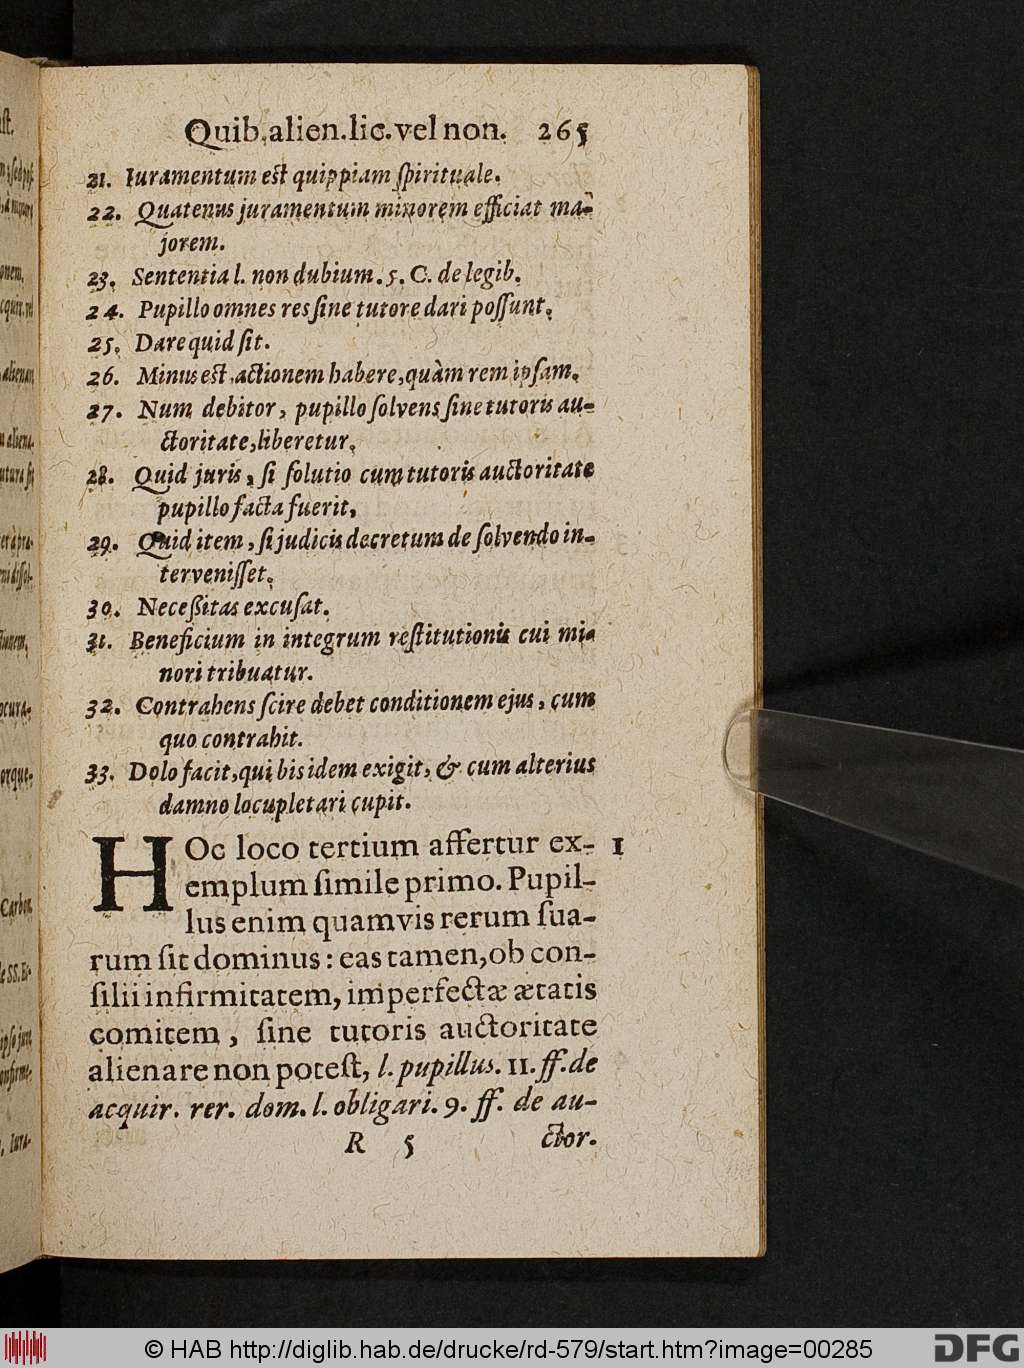 Quib.alien.lic.vel non. 265
21. Iuramentum est quippiam ſpirituale.
22. Quatenus juramentum minorem efficiat ma-
jorem.
23. Sententia l. non dubium. 5. C. de legib.
24. Pupillo omnes res ſine tutore dari poſſunt.
25. Dare quid ſit.
26. Minus est actionem habere, quàm rem ipſam.
27. Num debitor, pupillo ſolvens ſine tutoris au-
ctoritate, liberetur.
28. Quid juris, ſi ſolutio cum tutoris auctoritate
pupillo facta fuerit.
29. Quid item, ſi judicis decretum de ſolvendo in-
terveniſſet.
30. Neceßitas excuſat.
31. Beneficium in integrum reſtitutionis cui mi-
nori tribuatur.
32. Contrahens ſcire debet conditionem ejus, cum
quo contrahit.
33. Dolo facit, qui bis idem exigit, & cum alterius
damno locupletari cupit.
HOc loco tertium affertur ex- 1
emplum ſimile primo. Pupil-
lus enim quamvis rerum ſua-
rum ſit dominus: eas tamen, ob con-
ſilii infirmitatem, imperfectæ ætatis
comitem, ſine tutoris auctoritate
alienare non poteſt, l. pupillus. 11. ff. de
acquir. rer. dom. l. obligari. 9. ff. de au-
R 5 ctor.
© HAB http://diglib.hab.de/drucke/rd-579/start.htm?image=00285
DFG